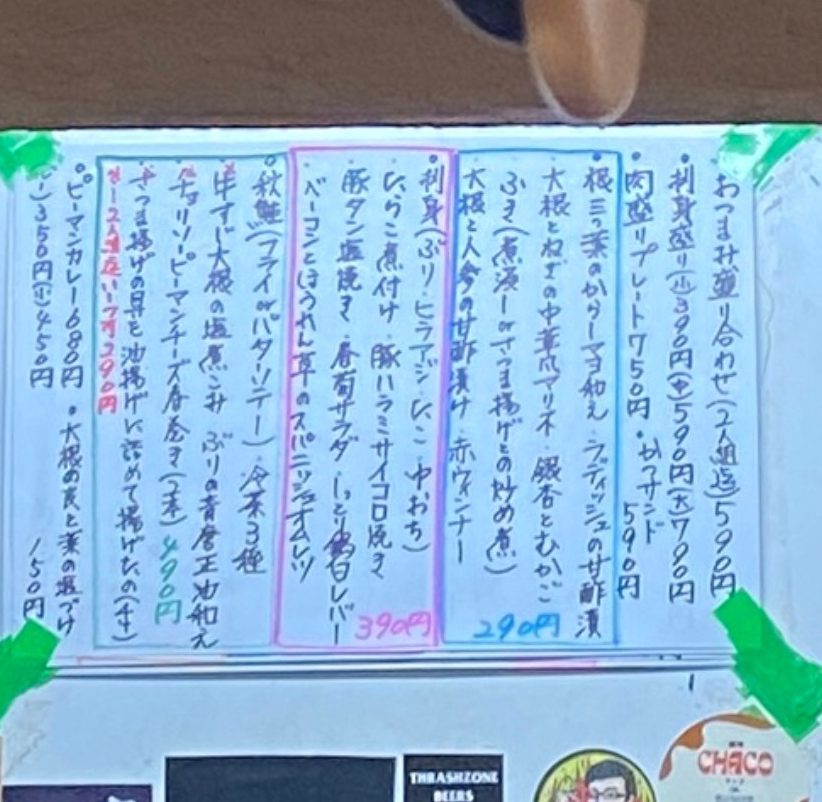 おつまみ盛り合わせ(2人組迄)590円
・刺身盛り(小)390円(中)590円(大)790円
・肉盛りプレート750円 ・かつサンド590円
・根三つ葉のからしマヨ和え ・ラディッシュの甘酢漬
・大根とねぎの中華風マリネ ・銀杏とむかご
・ふき(煮浸しorさつま揚げとの炒め煮)
・大根と人参の甘酢漬け ・赤ウィンナー
290円
・刺身(ぶり・ヒラアジ・たこ・中おち)
・たらこ煮付け ・豚ハラミサイコロ焼き
・豚タン塩焼き ・春菊サラダ ・しっとり鶏白レバー
・ベーコンとほうれん草のスパニッシュオムレツ
390円
・秋鮭(フライorバターソテー) ・冷菜3種
牛すじ大根の塩煮こみ ・ぶりの青唐正油和え
チョリソーピーマンチーズ春巻き(2本)490円
さつま揚げの具を油揚げに詰めて揚げたの
2人組迄 290円
・ピーマンカレー680円 ・大根の皮と葉の塩づけ150円
350円(小)450円
THRASHZONE
BEERS
CHACO